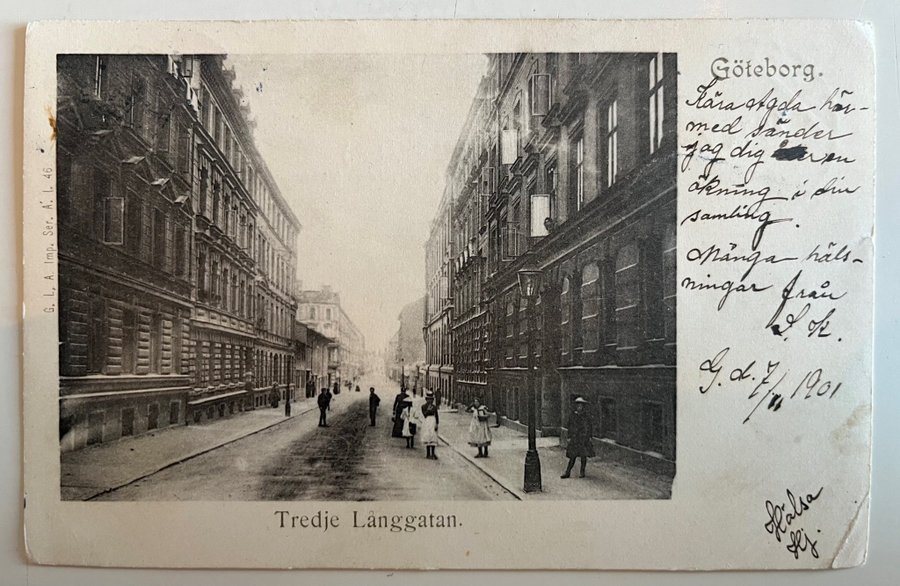 Göteborg.
Kära Agda här-
med sänder
jag dig en
ökning i din
samling.
Många häls-
ningar från
S. K.
G. d. 7/11 1901
Hälsa
Hj.
Tredje Långgatan.
G. L, A Imp. Ser. A. l. 46